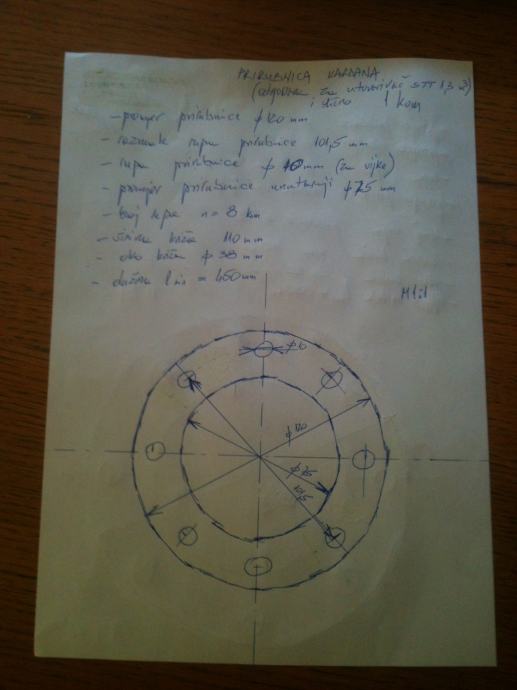 PRIRUBNICA KARDANA
(odgovara za utovarivač STT 1,3 m3)
i slično 1 kom
- promjer prirubnice ϕ 120 mm
- razmak rupa prirubnice 101,5 mm
- rupa prirubnice ϕ 10 mm (za vijke)
- promjer prirubnice unutarnji ϕ 75 mm
- broj rupa n = 8 kom
- širina križa 110 mm
- oko križa ϕ 38 mm
- dužina l min = 460 mm
M 1:1
ϕ 10
ϕ 120
ϕ 75
101,5